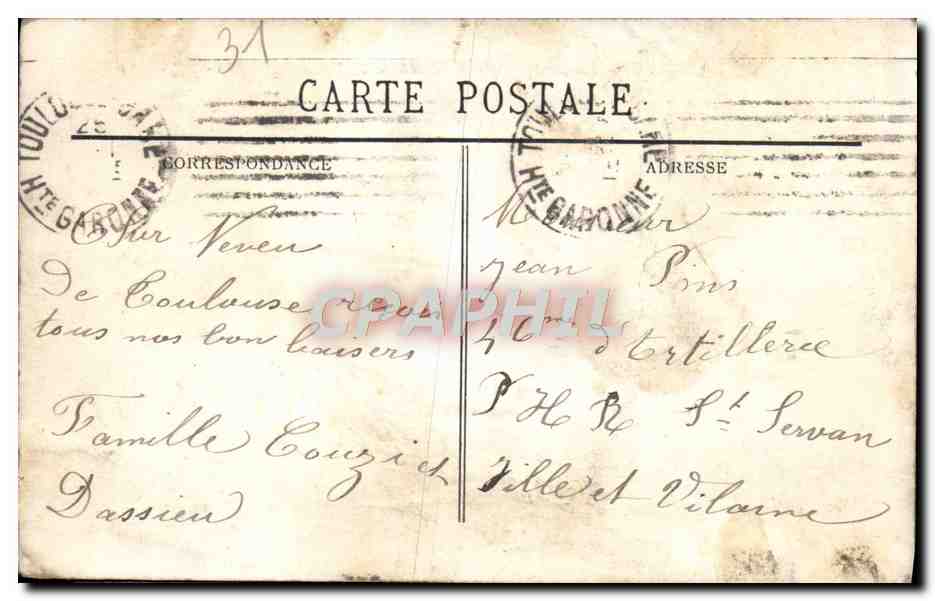 31
CARTE POSTALE
CORRESPONDANCE
ADRESSE
TOULOUSE GARE
25
Hte GARONNE
TOUL GARE
Hte GARONNE
Cher Neveu
de Toulouse reçois
tous nos bon baisers
Famille Couzi et
Dassieu
Monsieur
Jean Pins
d'Artillerie
P H R St Servan
Ille et Vilaine
CPAPHIL